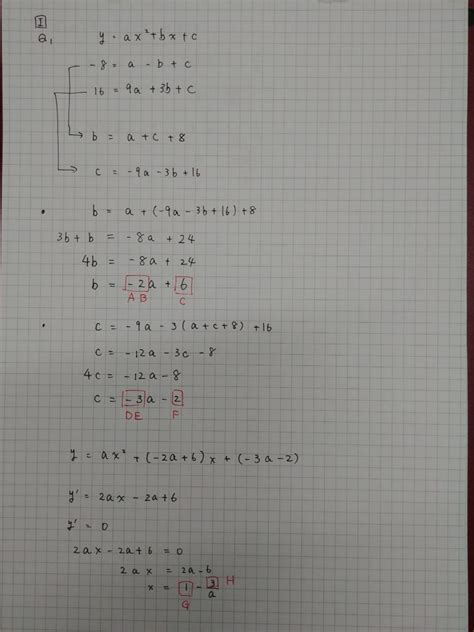 I
Q1 y = ax² + bx + c
-8 = a - b + c
16 = 9a + 3b + c
b = a + c + 8
c = -9a - 3b + 16
• b = a + (-9a - 3b + 16) + 8
3b + b = -8a + 24
4b = -8a + 24
b = -2a + 6
A B C
• c = -9a - 3(a + c + 8) + 16
c = -12a - 3c - 8
4c = -12a - 8
c = -3a - 2
DE F
y = ax² + (-2a + 6)x + (-3a - 2)
y' = 2ax - 2a + 6
y' = 0
2ax - 2a + 6 = 0
2ax = 2a - 6
x = 1 - 3/a H
G